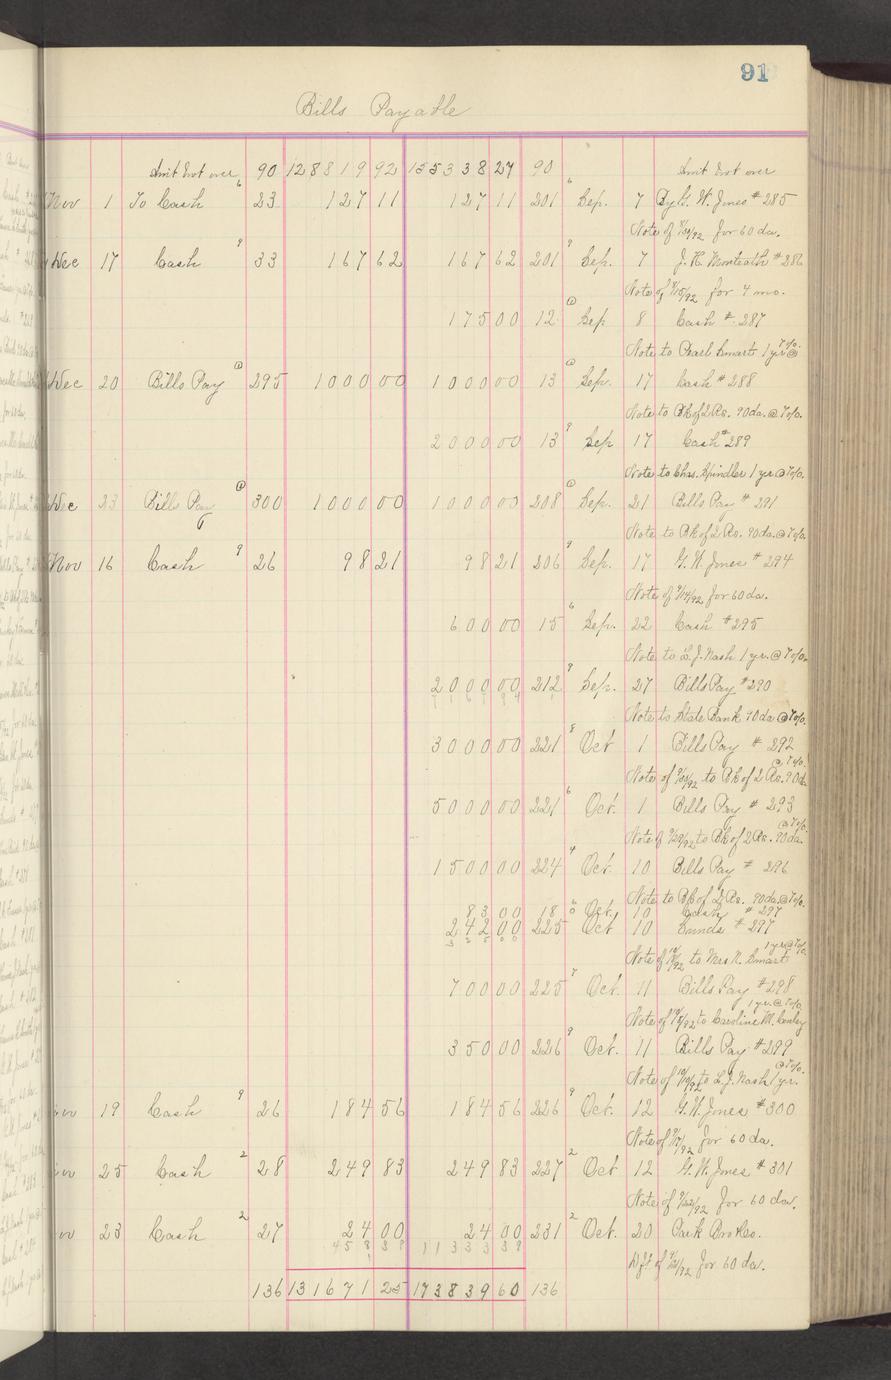 91
Bills Payable
Amt brot over 90 128819 92 155338 27 90 Amt brot over
Nov 1 To Cash 6 23 127 11 127 11 201 6 Sep. 7 By G. W. Jones # 285
Note of 8/30/92 for 60 da.
Dec 17 Cash 9 33 167 62 167 62 201 9 Sep. 7 J. H. Monteath # 286
Note of 8/15/92 for 4 mo.
175 00 12 @ Sep 8 Cash # 287
Note to Pearl Smart 1 yr @ 7%.
Dec 20 Bills Pay @ 295 1000 00 1000 00 13 @ Sep. 17 Cash # 288
Note to Bk of 2 Rs. 90 da. @ 7%.
2000 00 13 9 Sep 17 Cash # 289
Note to Chas. Spindler 1 yr @ 7%.
Dec 23 Bills Pay @ 300 1000 00 1000 00 208 @ Sep. 21 Bills Pay # 291
Note to Bk of 2 Rs. 90 da. @ 7%.
Nov 16 Cash 9 26 98 21 98 21 206 9 Sep. 17 G. W. Jones # 294
Note of 9/14/92 for 60 da.
600 00 15 6 Sep. 22 Cash # 295
Note to L. J. Nash 1 yr. @ 7%.
2000 00 212 9 Sep. 27 Bills Pay # 290
Note to State Bank 90 da @ 7%.
3000 00 221 8 Oct 1 Bills Pay # 292
@ 7%.
Note of to Bk of 2 Rs. 90 da
5000 00 221 6 Oct. 1 Bills Pay # 293
@ 7%.
Note of 9/29/92 to Bk of 2 Rs. 90 da.
1500 00 224 4 Oct. 10 Bills Pay # 296
Note to Bk of 2 Rs. 90 da. @ 7%.
83 00 18 6 Oct. 10 Cash # 297
242 00 225 0 Oct 10 # 297
1 yr @ 7%.
Note of to Mrs N. Smart
700 00 225 7 Oct. 11 Bills Pay # 298
1 yr. @ 7%.
Note of to Caroline M. Conley
350 00 226 9 Oct. 11 Bills Pay # 299
@ 7%.
Note of 10/10/92 to L. J. Nash 1 yr.
19 Cash 9 26 184 56 184 56 226 9 Oct. 12 G. W. Jones # 300
Note of for 60 da.
25 Cash 2 28 249 83 249 83 227 2 Oct 12 G. W. Jones # 301
Note of 9/22/92 for 60 da.
23 Cash 2 27 24 00 24 00 231 2 Oct. 20 Park Bro & Co.
Dft of 9/21/92 for 60 da.
136 131671 25 173839 60 136